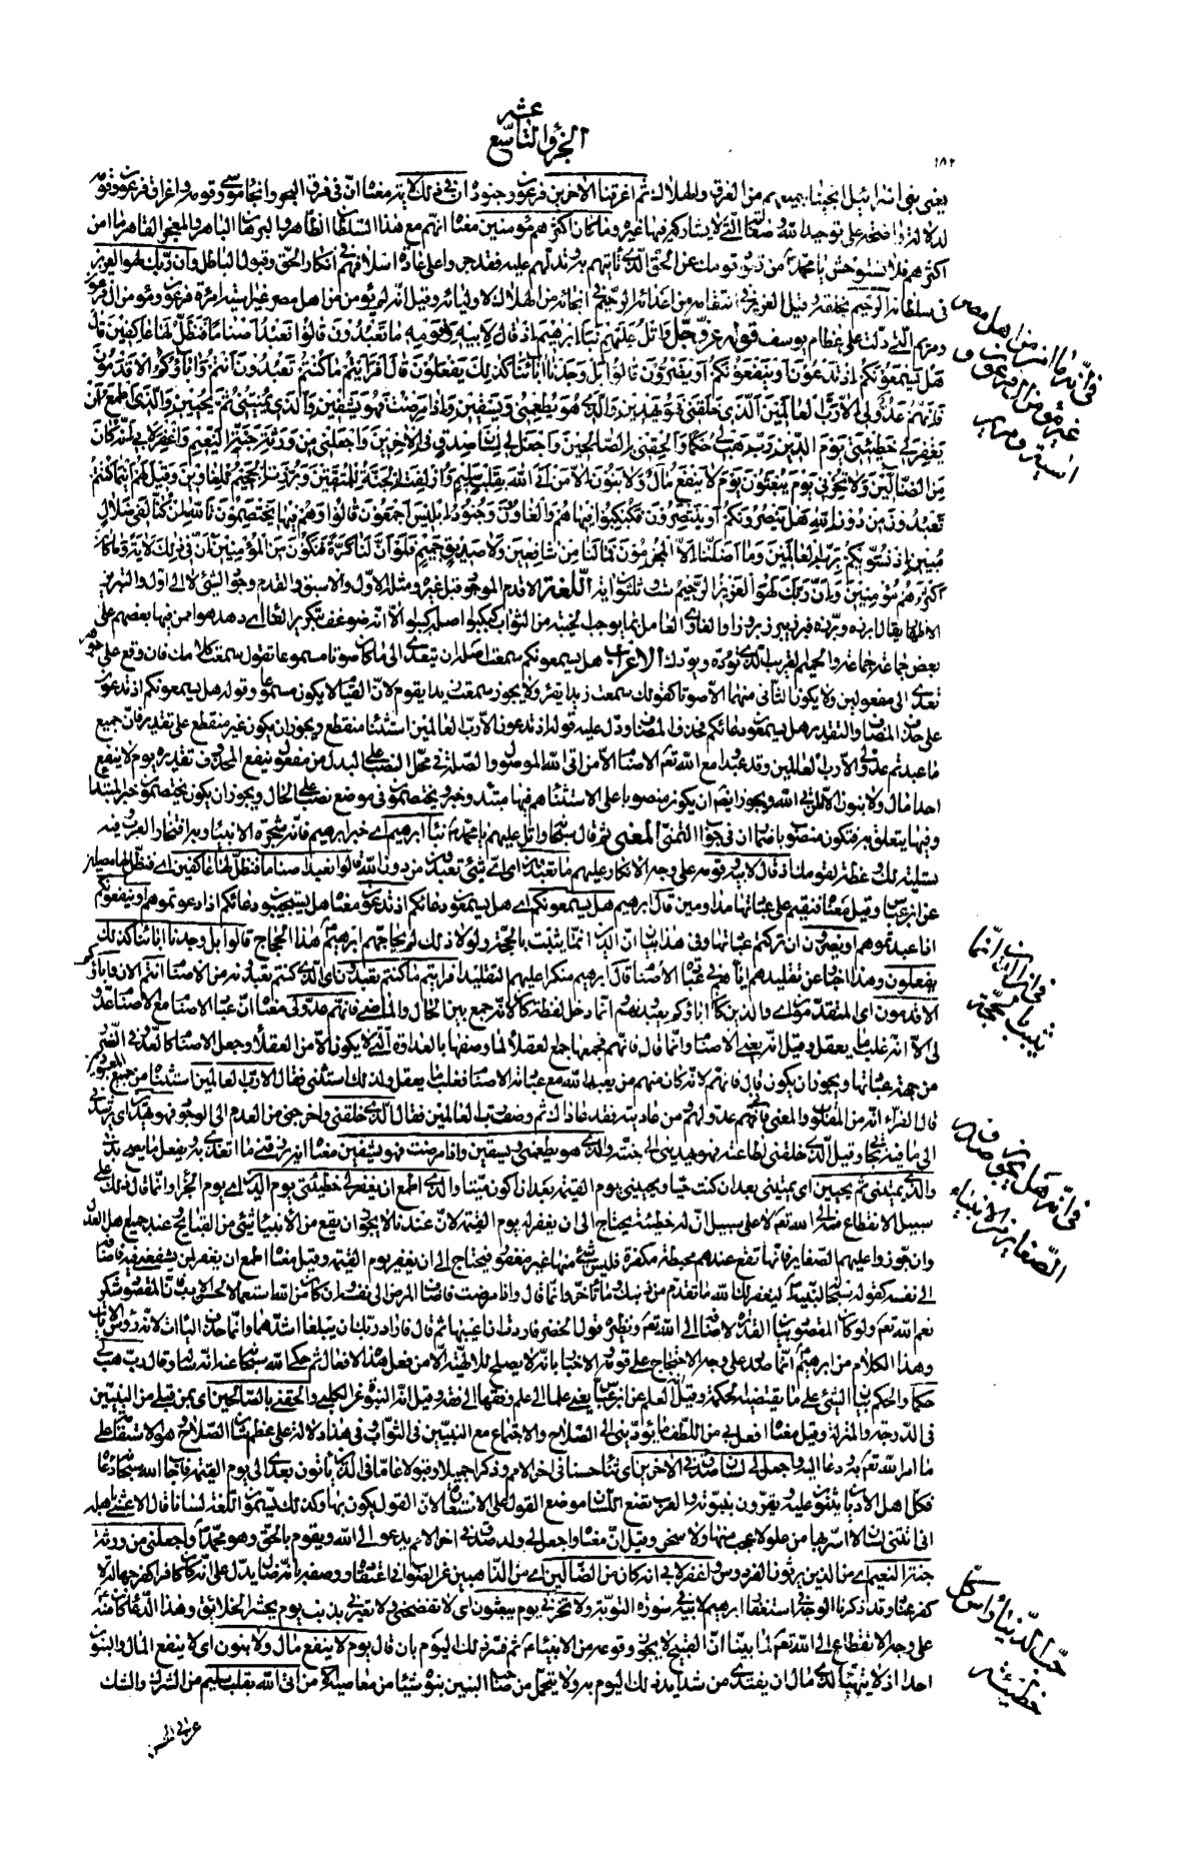 الجزؤ التاسع عشر
١٨٢
يعنى بنى اسرائيل انجينا جميعهم من الغرق والهلاك ثم اغرقنا الاخرين فرعون وجنوده ان فى ذلك لاية معناه ان فى فرق البحر وانجاء موسى وقومه واغراق فرعون وقومه
لدلالة واضحة على توحيد الله وصفاته التى لا يشاركه فيها غيره وما كان اكثرهم مؤمنين معناه انهم مع هذا السلطان الظاهر والبرهان الباهر والمعجز القاهر ما امن
اكثرهم فلا تستوحش يا محمد من قعود قومك عن الحق الذى تاتيهم به وتدلهم عليه فقد جروا على عادة اسلافهم فى انكار الحق وقبول الباطل وان ربك لهو العزيز
فى سلطانه الرحيم بخلقه وقيل العزيز فى انتقامه من اعدائه الرحيم فى انجائه من الهلاك لاوليائه وقيل انه لم يؤمن من اهل مصر غير اسية امرأة فرعون ومؤمن ال فرعون
ومريم التى دلت على عظام يوسف قوله عز وجل واتل عليهم نبأ ابرهيم اذ قال لابيه وقومه ما تعبدون قالوا نعبد اصناما فنظل لها عاكفين قال
هل يسمعونكم اذ تدعون او ينفعونكم او يضرون قالوا بل وجدنا اباءنا كذلك يفعلون قال افرايتم ما كنتم تعبدون انتم واباؤكم الاقدمون
فانهم عدو لى الا رب العالمين الذى خلقنى فهو يهدين والذى هو يطعمنى ويسقين واذا مرضت فهو يشفين والذى يميتنى ثم يحيين والذى اطمع ان
يغفر لى خطيئتى يوم الدين رب هب لى حكما والحقنى بالصالحين واجعل لى لسان صدق فى الاخرين واجعلنى من ورثة جنة النعيم واغفر لابى انه كان
من الضالين ولا تخزنى يوم يبعثون يوم لا ينفع مال ولا بنون الا من اتى الله بقلب سليم وازلفت الجنة للمتقين وبرزت الجحيم للغاوين وقيل لهم اينما كنتم
تعبدون من دون الله هل ينصرونكم او ينتصرون فكبكبوا فيها هم والغاون وجنود ابليس اجمعون قالوا وهم فيها يختصمون تالله ان كنا لفى ضلال
مبين اذ نسويكم برب العالمين وما اضلنا الا المجرمون فما لنا من شافعين ولا صديق حميم فلو ان لنا كرة فنكون من المؤمنين ان فى ذلك لاية وما كان
اكثرهم مؤمنين وان ربك لهو العزيز الرحيم ست وثلثون اية اللغة الاقدم الموجود قبل غيره ومثله الاول والاسبق والقدم وجود الشئ لا الى اول والتبريز
الاظهار يقال ابرزه وبرزه فبرز يبرز بروزا والغاوى العامل بما يوجب الخيبة من الثواب كبكبوا اصله كببوا الا انه ضوعف بتكرير الفاء اى دهدهوا من فيها بعضهم على
بعض جماعة جماعة والحميم القريب الذى توده ويودك الاعراب هل يسمعونكم سمعت اصله ان يتعدى الى ما كان صوتا مسموعا تقول سمعت كلامك فان وقع على جوهر
تعدى الى مفعولين ولا يكون الثانى منهما الا صوتا كقولك سمعت زيدا يقرء ولا يجوز سمعت زيدا يقوم لان القيام لا يكون مسموعا وقوله هل يسمعونكم اذ تدعون
على حذف المضاف والتقدير هل يسمعون دعائكم فحذف المضاف ودل عليه قوله اذ تدعون الا رب العالمين استثناء منقطع ويجوز ان يكون غير منقطع على تقدير فان جميع
ما عبدتم عدو لى الا رب العالمين وقد عبدوا مع الله تعم الاصنام الا من اتى الله الموصول والصلة فى محل النصب على البدل من مفعول ينفع المحذوف تقديره يوم لا ينفع
احدا مال ولا بنون الا من اتى الله ويجوز ايضا ان يكون منصوبا على الاستثناء هم فيها مبتدء وخبر ويختصمون فى موضع نصب على الحال ويجوز ان يكون يختصمون خبر المبتدا
وفيها يتعلق به فنكون منصوب باضمار ان فى جواب التمنى المعنى ثم قال سبحانه واتل عليهم يا محمد نبأ ابرهيم اى خبر ابرهيم فانه شجرة الانبياء وبه افتخار العرب وفيه
تسلية لك وعظة لقومك اذ قال لابيه وقومه على وجه الانكار عليهم ما تعبدون اى اى شئ تعبدون من دون الله قالوا نعبد اصناما فنظل لها عاكفين اى فنظل لها مصلين
عن ابن عباس وقيل معناه فنقيم على عبادتها مداومين قال ابرهيم هل يسمعونكم اى هل يسمعون دعائكم اذ تدعون معناه هل يستجيبون دعائكم اذا دعوتموهم او ينفعونكم
اذا عبدتموهم او يضرون ان تركتم عبادتها وفى هذا بيان ان الدين انما يثبت بالحجة ولولا ذلك لم يحاجهم ابرهيم هذا الحجاج قالوا بل وجدنا اباءنا كذلك
يفعلون وهذا اخبار عن تقليدهم اباءهم فى عبادة الاصنام قال ابرهيم منكرا عليهم التقليد افرايتم ما كنتم تعبدون اى الذى كنتم تعبدونه من الاصنام انتم الان واباؤكم
الاقدمون اى المتقدمون اى والذين كان اباؤكم يعبدونهم انما دخل لفظة كان لانه جمع بين الحال والماضى فانهم عدو لى معناه ان عباد الاصنام مع الاصنام عدو
لى الا انه غلب ما يعقل وقيل انه يعنى الاصنام وانما قال فانهم فجمعها جمع العقلاء لما وصفها بالعداوة التى لا يكون الا من العقلاء وجعل الاصنام كالعدو فى الضرر
من جهة عبادتها ويجوز ان يكون قال فانهم لانه كان منهم من يعبد الله مع عبادته الاصنام فغلب ما يعقل ولذلك استثنى فقال الا رب العالمين استثناه من جميع المعبودين
قال الفراء انه من المقلوب والمعنى فانى عدو لهم ومن عاديته فقد عاداك ثم وصف رب العالمين فقال الذى خلقنى واخرجنى من العدم الى الوجود فهو يهدين اى يرشدنى
الى ما فيه نجاتى وقيل الذى خلقنى لطاعته فهو يهدينى الى جنته والذى هو يطعمنى ويسقين واذا مرضت فهو يشفين معناه انه يرزقنى ما اتغذى به ويفعل ما يصح به بدنى
والذى يميتنى ثم يحيين اى يميتنى بعد ان كنت حيا ويحيينى يوم القيمة بعد ان اكون ميتا والذى اطمع ان يغفر لى خطيئتى يوم الدين اى يوم الجزاء وانما قال ذلك على
سبيل الانقطاع منه الى الله تعم لا على سبيل ان له خطيئة يحتاج الى ان يغفر له يوم القيمة لان عندنا لا يجوز ان يقع من الانبياء شئ من القبائح وعند جميع اهل العدل
وان جوزوا عليهم الصغاير فانها تقع عندهم محبطة مكفرة فليس شئ منها غير مغفور فيحتاج الى ان يغفر يوم القيمة وقيل معناه اطمع ان يغفر لمن يشفعنى فيه فاضافه
الى نفسه كقوله سبحانه لنبيه ليغفر لك الله ما تقدم من ذنبك وما تأخر وانما قال واذا مرضت فاضاف المرض الى نفسه وان كان من الله استعمالا لحسن الادب فان المقصود شكر
نعم الله تعم ولو كان المقصود بيان القدرة لاضافه الى الله تعم ونظيره قول الخضر فاردت ان اعيبها ثم قال فاراد ربك ان يبلغا اشدهما وانما حذف الياءات لانها رؤس الاى
وهذا الكلام من ابرهيم انما صدر على وجه الاحتجاج على قومه والاخبار بانه لا يصلح للالهية الا من فعل هذه الافعال ثم حكى الله سبحانه عنه انه سأله وقال رب هب لى
حكما والحكم بيان الشئ على ما يقتضيه الحكمة وقيل انه العلم عن ابن عباس يعنى علما الى علم وفقها الى فقه وقيل انه النبوة عن الكلبى والحقنى بالصالحين اى بمن قبلى من النبيين
فى الدرجة والمنزلة وقيل معناه افعل بى من اللطف ما يؤدينى الى الصلاح والاجتماع مع النبيين فى الثواب وفى هذا دلالة على عظم شان الصلاح وهو الاستقامة على
ما امر الله تعم به ودعا اليه واجعل لى لسان صدق فى الاخرين اى ثناء حسنا فى اخر الامم وذكرا جميلا وقبولا عاما فى الذين ياتون بعدى الى يوم القيمة فاجاب الله سبحانه دعاءه
فكل اهل الاديان يثنون عليه ويقرون بنبوته والعرب تضع اللسان موضع القول على الاستعارة لان القول يكون بها وكذلك يسمون اللغة لسانا قال الاعشى باهلة
انى اتتنى لسان لا اسر بها من علو لا عجب منها ولا سخر وقيل ان معناه واجعل لى ولد صدق فى اخر الامم يدعو الى الله ويقوم بالحق وهو محمد واجعلنى من ورثة
جنة النعيم اى من الذين يرثون الفردوس واغفر لابى انه كان من الضالين اى من الذاهبين عن الصواب فى اعتقاده ووصفه بانه ضال يدل على انه كان كافرا كفر جهالة لا
كفر عناد وقد ذكرنا الوجه فى استغفار ابرهيم لابيه فى سورة التوبة ولا تخزنى يوم يبعثون اى لا تفضحنى ولا تعيرنى بذنب يوم يحشر الخلائق وهذا الدعاء كان منه
على وجه الانقطاع الى الله تعم لما بينا ان القبيح لا يجوز وقوعه من الانبياء ثم فسر ذلك اليوم بان قال يوم لا ينفع مال ولا بنون اى لا ينفع المال والبنون
احدا اذ لا يتهيأ لذى مال ان يفتدى من شدايد ذلك اليوم به ولا يتحمل من صاحب البنين بنوه شيئا من معاصيه الا من اتى الله بقلب سليم من الشرك والشك
عن الحسن
فى انه ما امن من اهل مصر
غير مؤمن ال فرعون و
اسية و مريم
فى ان الدين انما
يثبت بالحجة
فى انه هل يجوز صدور
الصغاير من الانبياء
حب الدنيا رأس كل
خطيئة